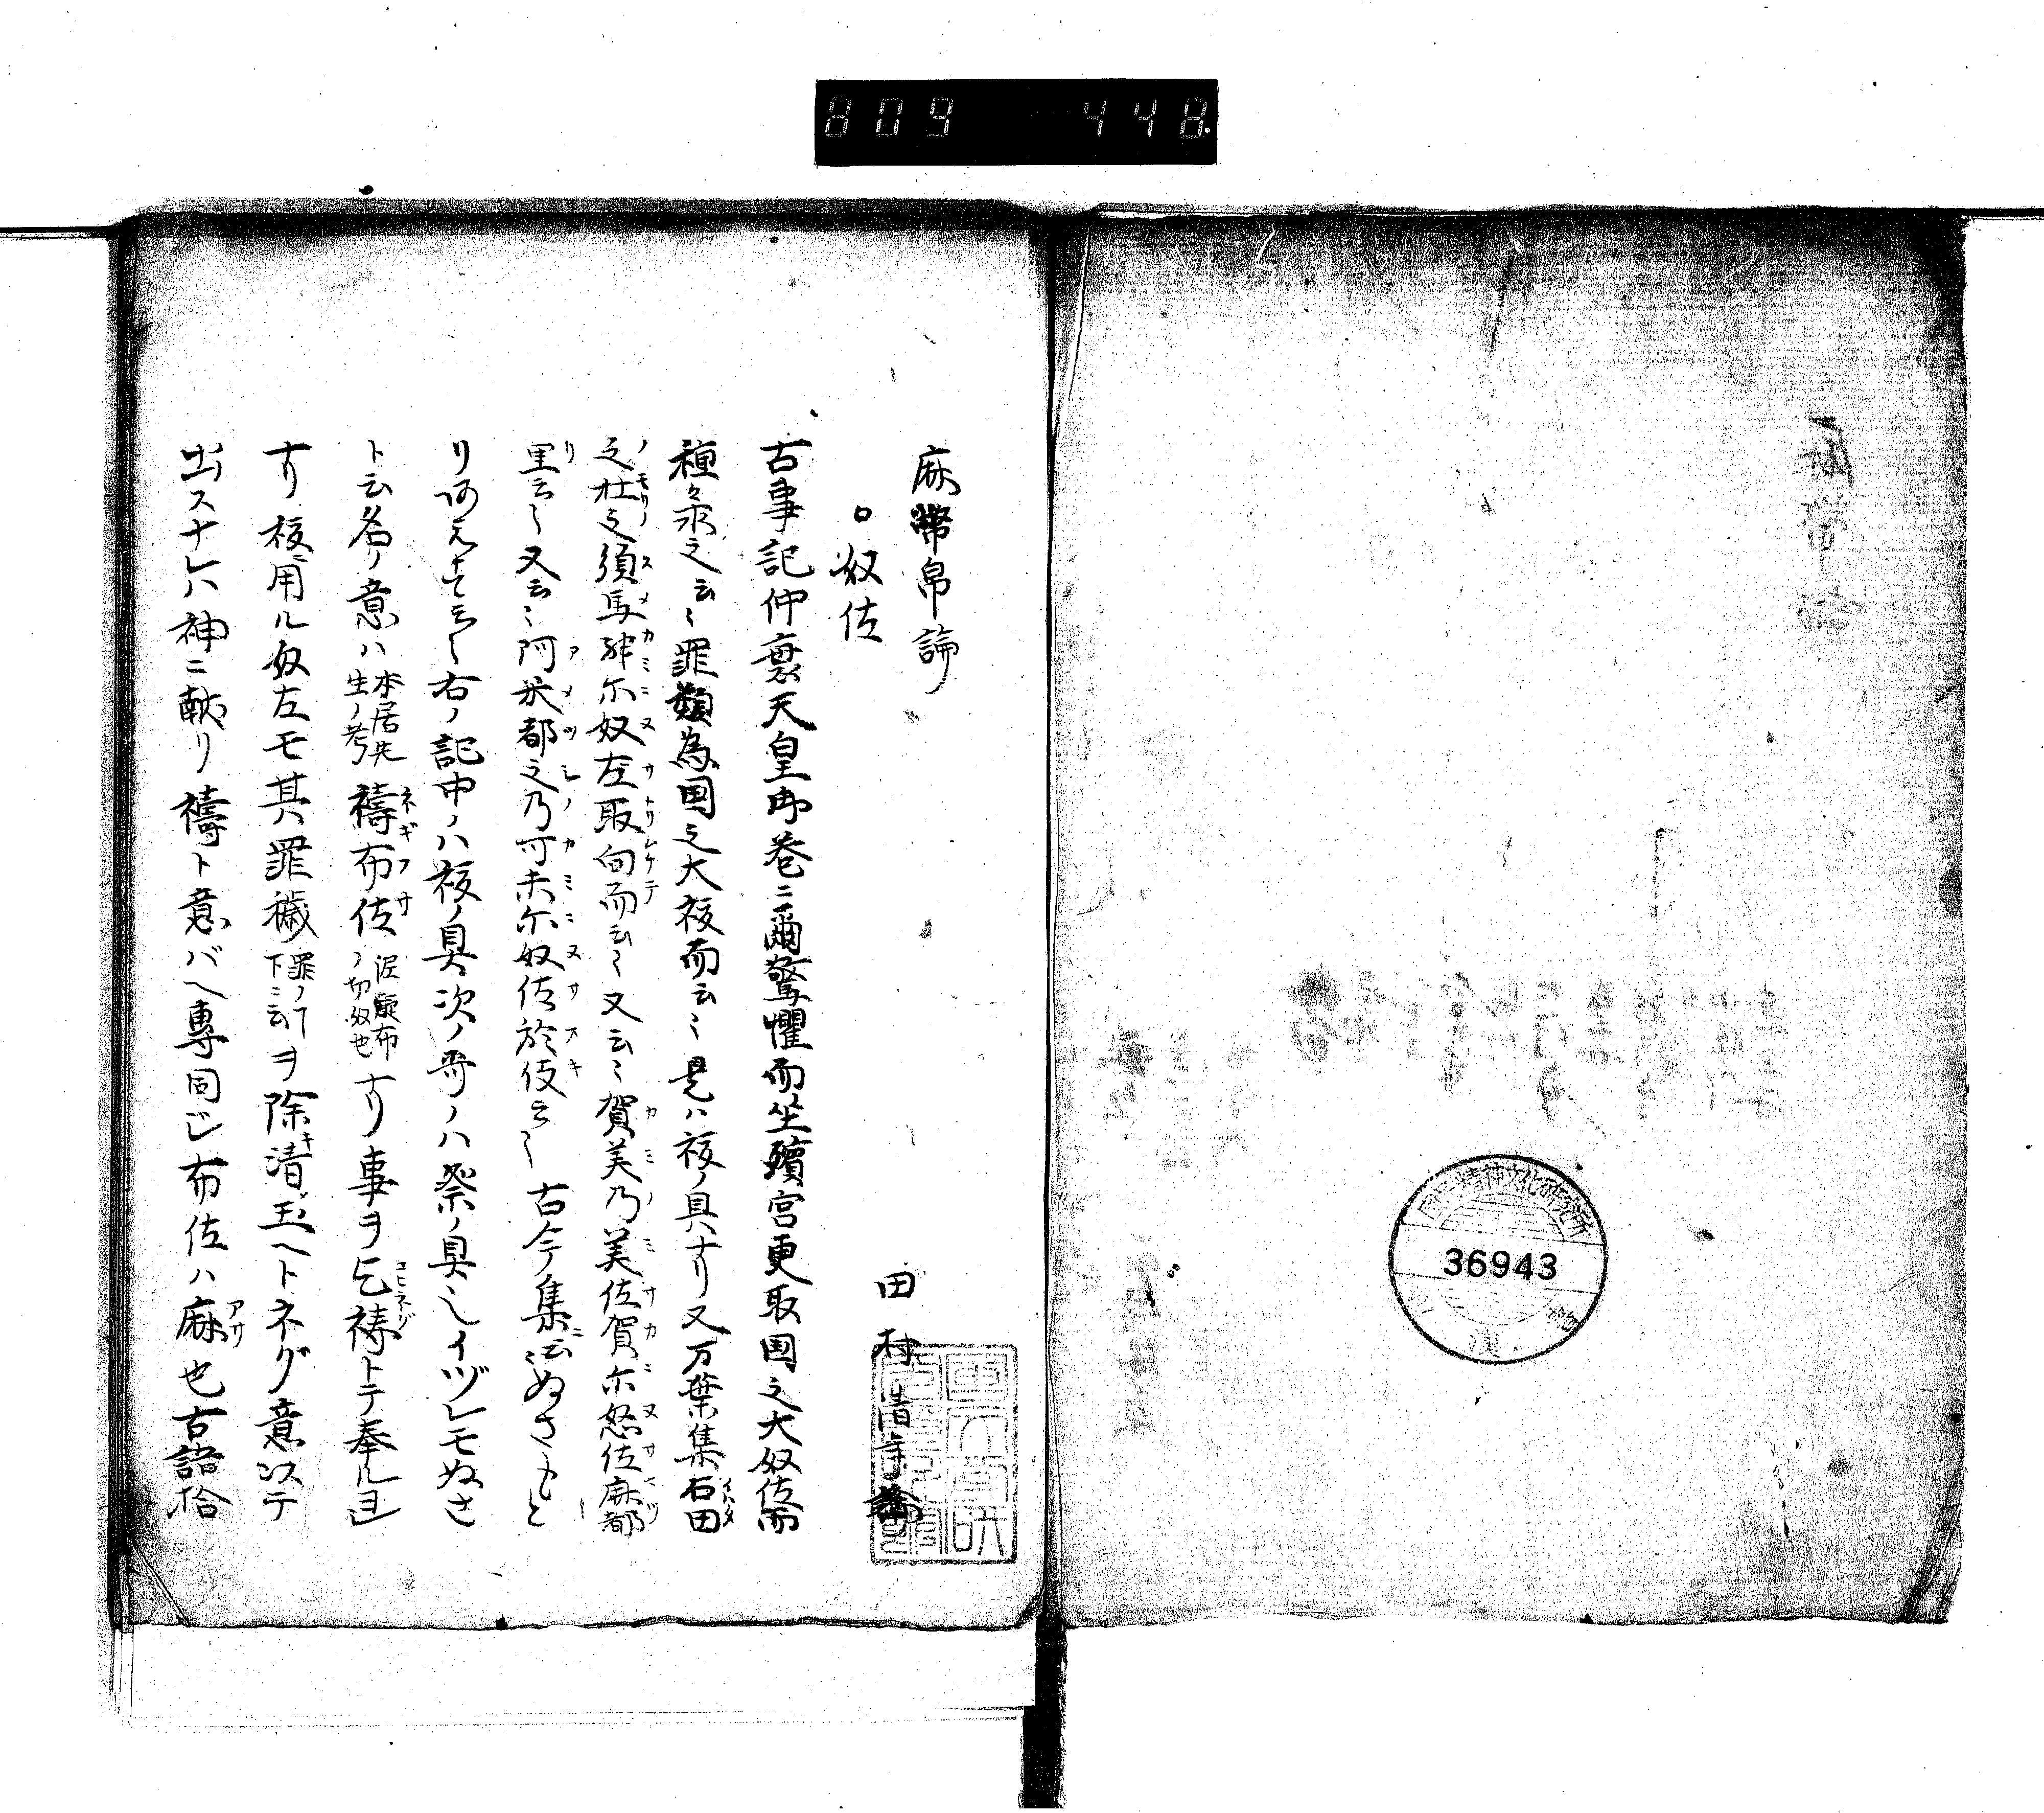 809 448
麻幣帛論
田村清守論
○奴佐
古事記仲哀天皇御巻ニ爾驚懼而坐殯宮更取国之大奴佐而
種々求之云〻罪類為国之大祓而云〻是ハ祓ノ具ナリ又万葉集石田
之杜之須馬神尓奴左取向而云〻又云〻賀美乃美佐賀尓怒佐麻都
里云〻又云〻阿米都之乃可未尓奴佐於伎云〻古今集ニ云ぬさもと
云〻右ノ記中ノハ祓ノ具次ノ哥ノハ祭ノ具ナレイヅレモぬさ
ト云名ノ意ハ本居先生ノ考禱布佐ノ切奴也ナリ事ヲ乞祷トテ奉ルヨシ
ナリ祓ニ用ル奴左モ其罪穢罪ノヿ下ニ云ヲ除キ清玉ヘトネグ意ニテ
出スナレハ神ニ献リ禱ト意バヘ専同じ布佐ハ麻也古語拾
36943
国民精神文化研究所